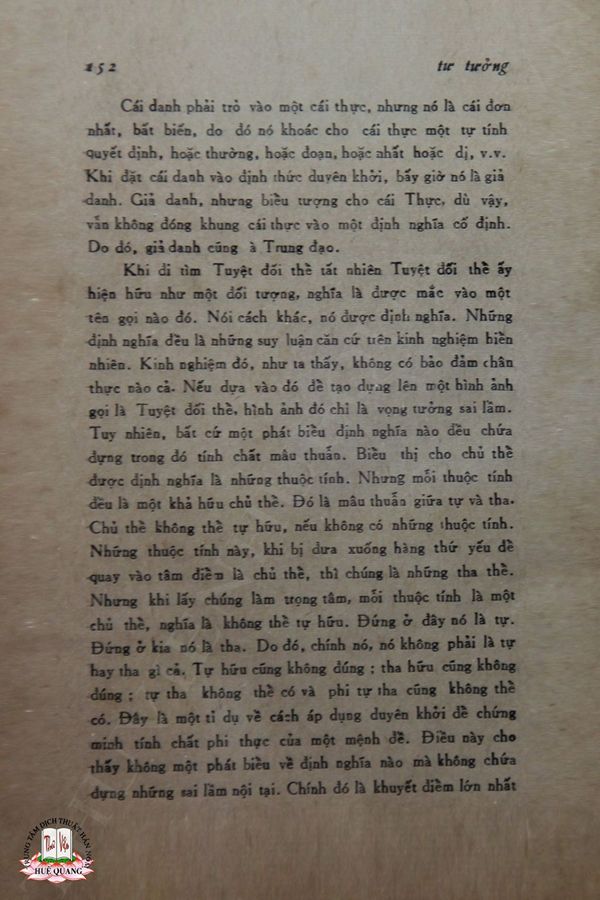 152 tư tưởng
Cái danh phải trỏ vào một cái thực, nhưng nó là cái đơn
nhất, bất biến, do đó nó khoác cho cái thực một tự tính
quyết định, hoặc thường, hoặc đoạn, hoặc nhất hoặc dị, v.v.
Khi đặt cái danh vào định thức duyên khởi, bấy giờ nó là giả
danh. Giả danh, nhưng biểu tượng cho cái Thực, dù vậy,
vẫn không đóng khung cái thực vào một định nghĩa cố định.
Do đó, giả danh cũng à Trung đạo.
Khi đi tìm Tuyệt đối thể tất nhiên Tuyệt đối thể ấy
hiện hữu như một đối tượng, nghĩa là được mắc vào một
tên gọi nào đó. Nói cách khác, nó được định nghĩa. Những
định nghĩa đều là những suy luận căn cứ trên kinh nghiệm hiển
nhiên. Kinh nghiệm đó, như ta thấy, không có bảo đảm chân
thực nào cả. Nếu dựa vào đó để tạo dựng lên một hình ảnh
gọi là Tuyệt đối thể, hình ảnh đó chỉ là vọng tưởng sai lầm.
Tuy nhiên, bất cứ một phát biểu định nghĩa nào đều chứa
đựng trong đó tính chất mâu thuẫn. Biểu thị cho chủ thể
được định nghĩa là những thuộc tính. Nhưng mỗi thuộc tính
đều là một khả hữu chủ thể. Đó là mâu thuẫn giữa tự và tha.
Chủ thể không thể tự hữu, nếu không có những thuộc tính.
Những thuộc tính này, khi bị đưa xuống hàng thứ yếu để
quay vào tâm điểm là chủ thể, thì chúng là những tha thể.
Nhưng khi lấy chúng làm trọng tâm, mỗi thuộc tính là một
chủ thể, nghĩa là không thể tự hữu. Đứng ở đây nó là tự.
Đứng ở kia nó là tha. Do đó, chính nó, nó không phải là tự
hay tha gì cả. Tự hữu cũng không đúng ; tha hữu cũng không
đúng ; tự tha không thể có và phi tự tha cũng không thể
có. Đây là một tỉ dụ về cách áp dụng duyên khởi để chứng
minh tính chất phi thực của một mệnh đề. Điều này cho
thấy không một phát biểu về định nghĩa nào mà không chứa
đựng những sai lầm nội tại. Chính đó là khuyết điểm lớn nhất
TRUNG TÂM DỊCH THUẬT HÁN NÔM
HUỆ QUANG